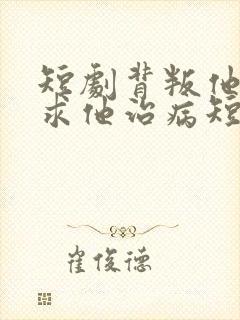 短劇背叛他
求他治病短
崔俊德